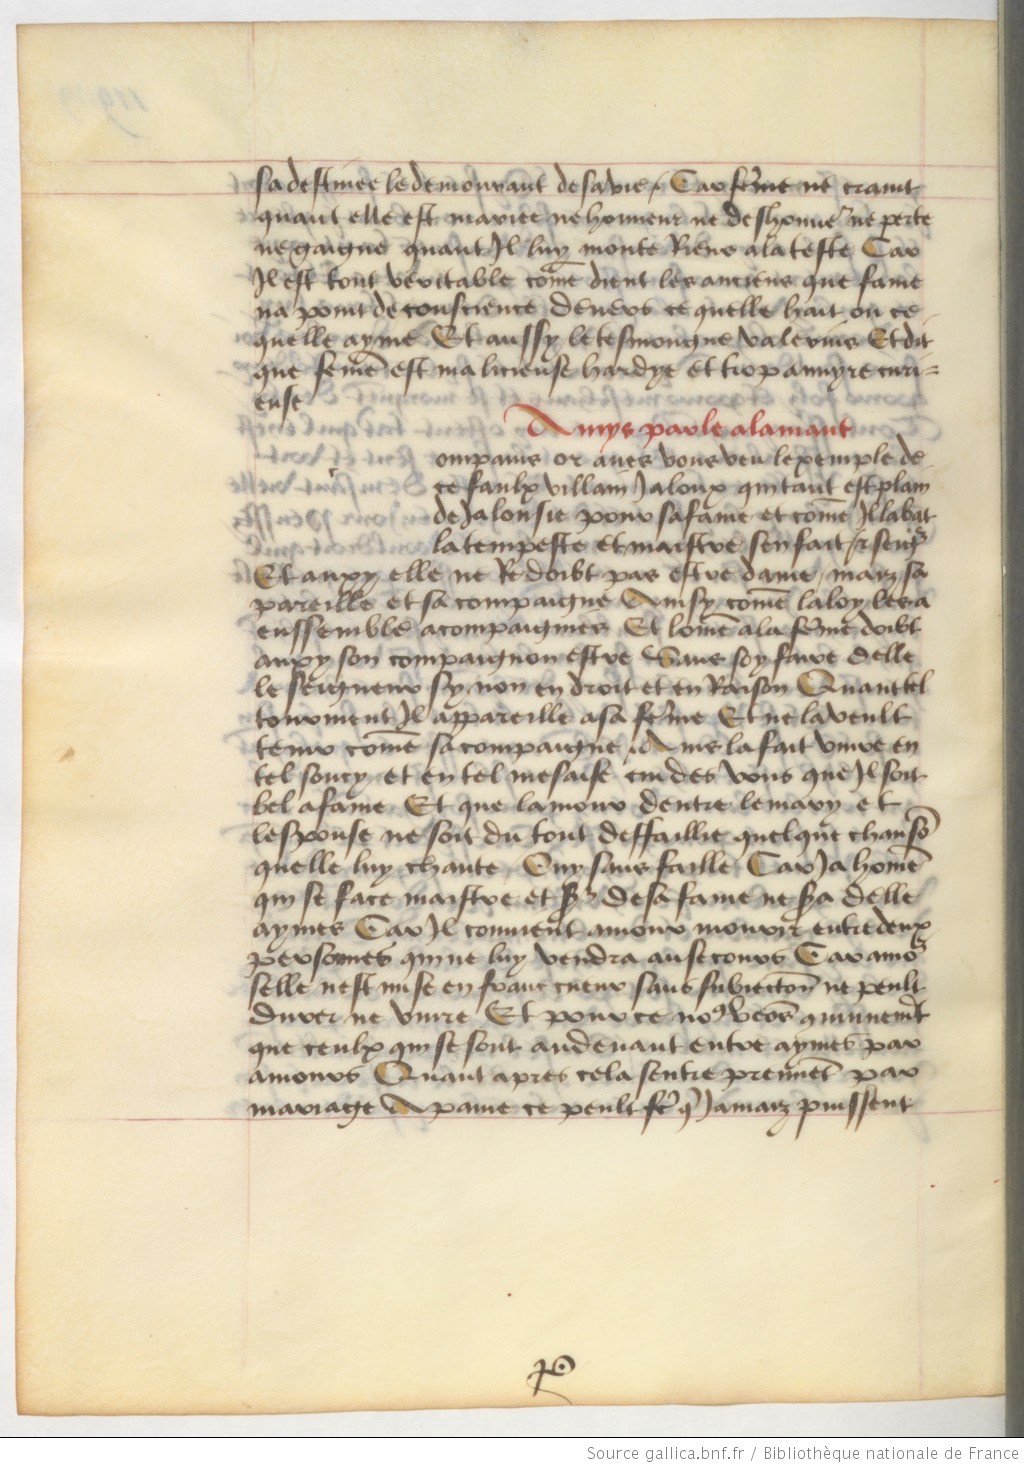 sa destinee le demourant de sa vie / Car fēme ne craint
quant elle est mariee ne honneur ne deshonne᷑ ne perte
ne gaigne quant Il luy monte Riens a la teste Car
Il est tout veritable cōme dient les anciens que fame
na point de conscience deuers ce quelle hait ou ce
quelle ayme Et aussy le tesmoigne valerius Et dit
que femē est malicieuse hardye et trop annyre curi=
euse
Amys parle a lamant
c
ompains or aues vous veu lexemple de
ce faulx villain Jaloux qui tant est plain
de Jalousie pour sa fame et cōme Il la bat
la tempeste et maistre sen fait / et seig᷑
Et auxy elle ne Re doibt pas estre dame / maiz sa
pareille et sa compaigne Ainsy cōme la loy les a
enssemble acompaignies Et lomē a la fēme doibt
auxy son compaignon estre Sans soy faire delle
le seigneur sy non en droit et en Raison Quant tel
tourment Il appareille a sa fēme Et ne la veult
tenir cōme sa compaigne Ains la fait viure en
tel soucy et en tel mesaise cuides vous que Il soit
bel a fame Et que lamour dentre le mary et
lespouse ne soit du tout deffaillie quelque chansō
quelle luy chante Ouy sans faille Car Ja homē
qui se face maistre et sr᷑ de sa fame ne sr᷑a delle
aymes Car Il conuient amour mourir entre deux
persōnes qui ne luy vendra au secours Car amo᷑
selle nest mise en franc cueur sans subiectōn ne peult
durer ne viure Et pour ce noꝰ veōs quiunemēt
que ceulx qui se sont au deuant entre aymes par
amours Quant apres cela sentre prennēt par
mariage A paine ce peult fē q̄ Jamaiz puissent
Source gallica.bnf.fr / Bibliothèque nationale de France